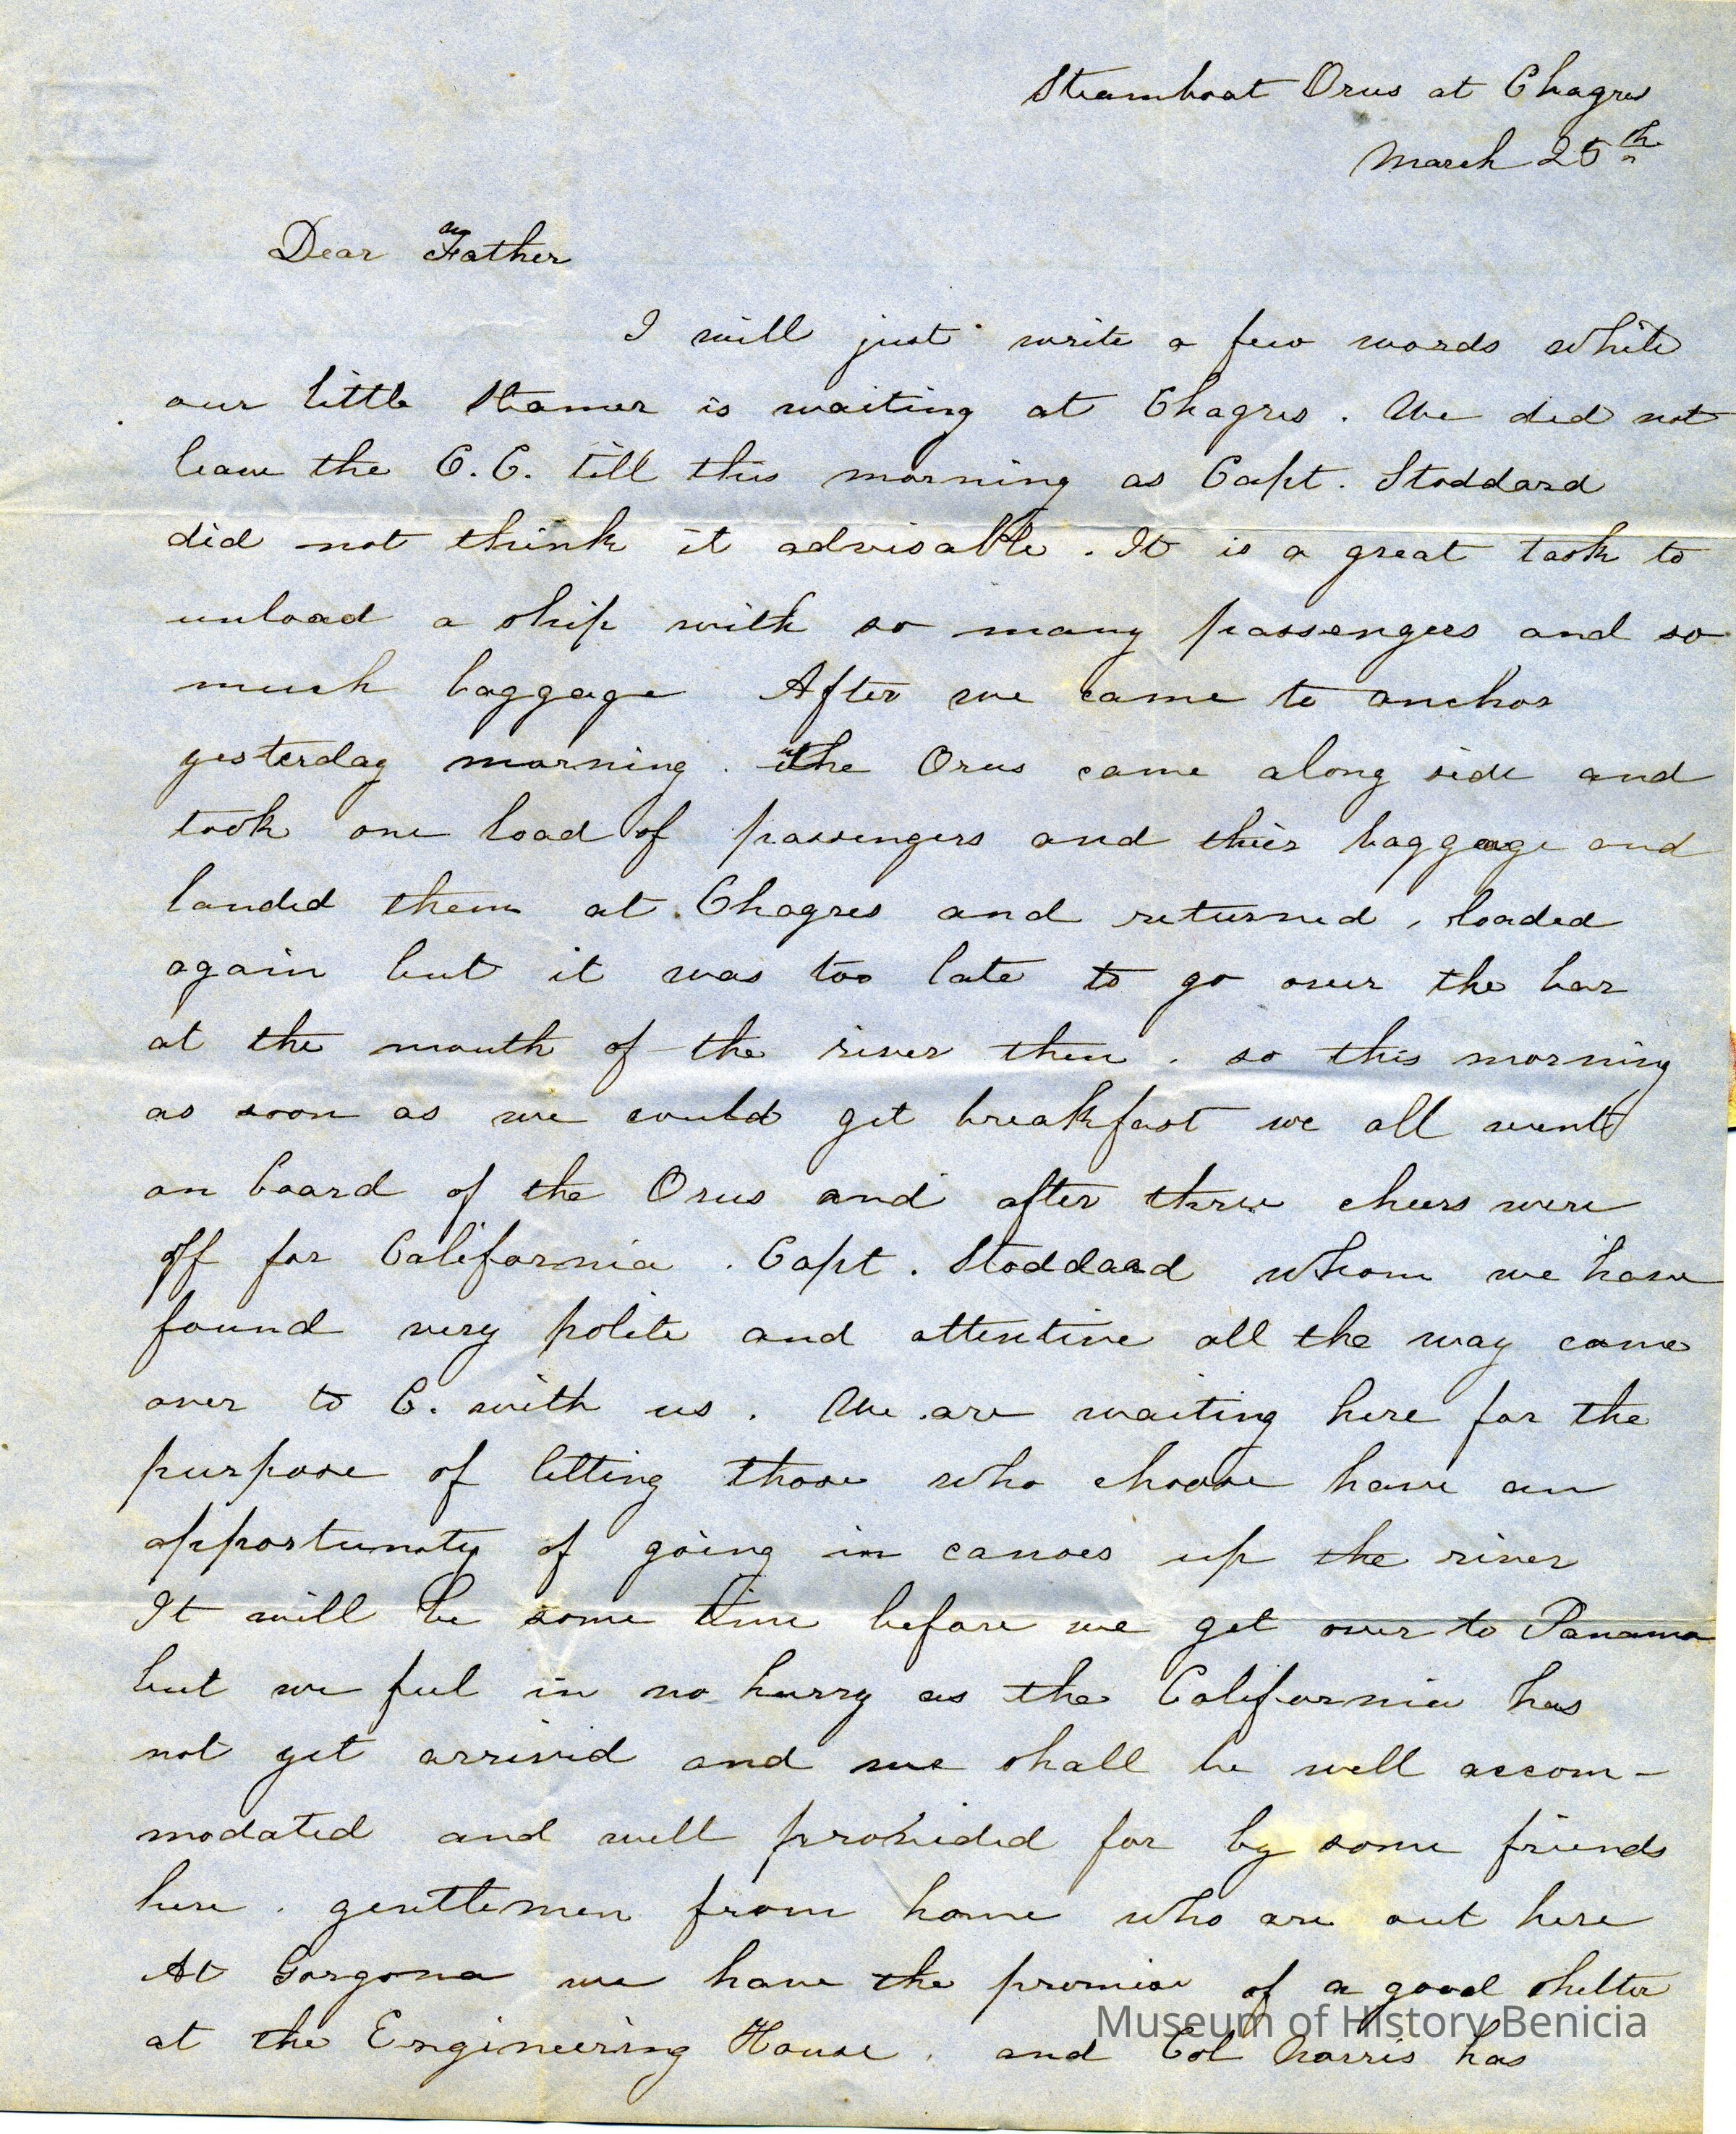 Steamboat Orus at Chagres
March 25th
Dear Father
I will just write a few words while
our little Steamer is waiting at Chagres. We did not
leave the C.C. till this morning as Capt. Stoddard
did not think it advisable. It is a great task to
unload a ship with so many passengers and so
much baggage After we came to anchor
yesterday morning. the Orus came along side and
took one load of passengers and thier baggage and
landed them at Chagres and returned, loaded
again but it was too late to go over the bar
at the mouth of the river then. so this morning
as soon as we could get breakfast we all went
on board of the Orus and after three cheers were
off for California. Capt. Stoddard whom we have
found very polite and attentive all the way came
over to C. with us. We are waiting here for the
purpose of letting those who choose have an
opportunity of going in canoes up the river
It will be some time before we get over to Panama
but we feel in no hurry as the California has
not yet arrived and we shall be well accom-
modated and well provided for by some friends
here. gentlemen from home who are out here
At Gorgona we have the promise of a good shelter
at the Engineering House. and Col Norris has
Museum of History Benicia